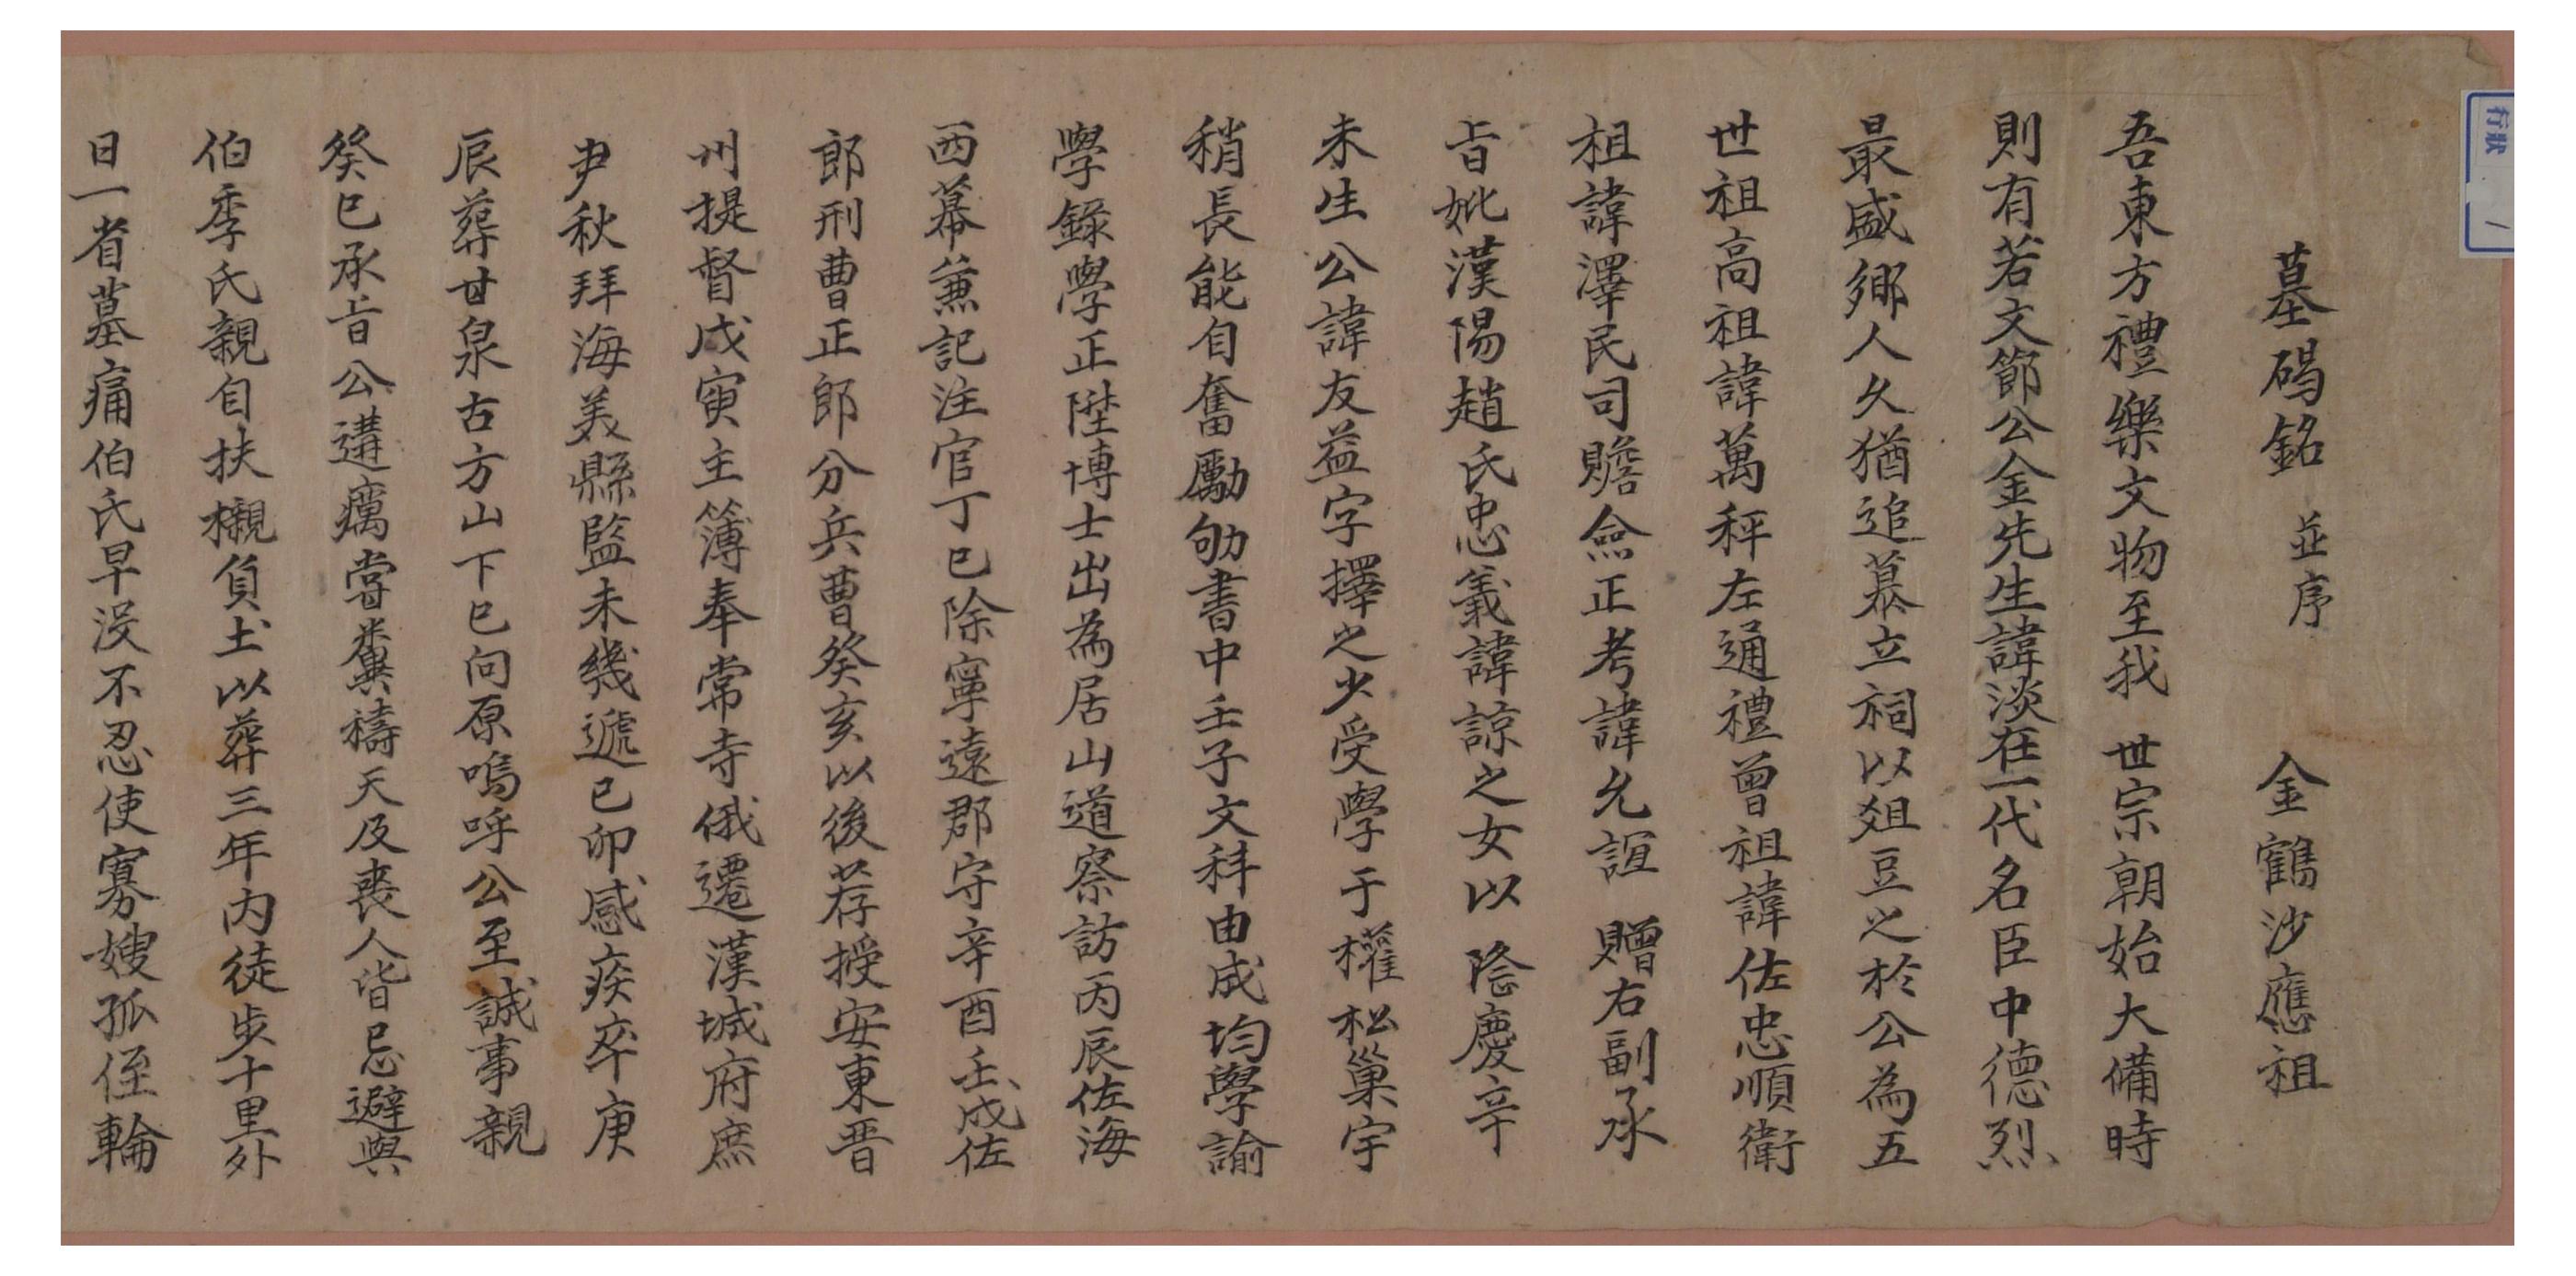 行狀 1
墓碣銘 並序 金鶴沙應祖
吾東方禮樂文物至我 世宗朝始大備時
則有若文節公金先生諱淡在一代名臣中德烈
最盛鄉人久猶追慕立祠以俎豆之於公為五
世祖高祖諱萬秤左通禮曾祖諱佐忠順衛
祖諱澤民司贍僉正考諱允誼 贈右副承
旨妣漢陽趙氏忠義諱諒之女以 隆慶辛
未生公諱友益字擇之少受學于權松巢宇
稍長能自奮勵劬書中壬子文科由成均學諭
學錄學正陞博士出為居山道察訪丙辰佐海
西幕兼記注官丁巳除寧遠郡守辛酉壬戌佐
郎刑曹正郎分兵曹癸亥以後荐授安東晋
州提督戊寅主簿奉常寺俄遷漢城府庶
尹秋拜海美縣監未幾遞己卯感疾卒庚
辰葬甘泉古方山下巳向原嗚呼公至誠事親
癸巳承旨公遘癘嘗糞禱天及喪人皆忌避與
伯季氏親自扶櫬負土以葬三年內徒步十里外
日一省墓痛伯氏早沒不忍使寡嫂孤侄輪